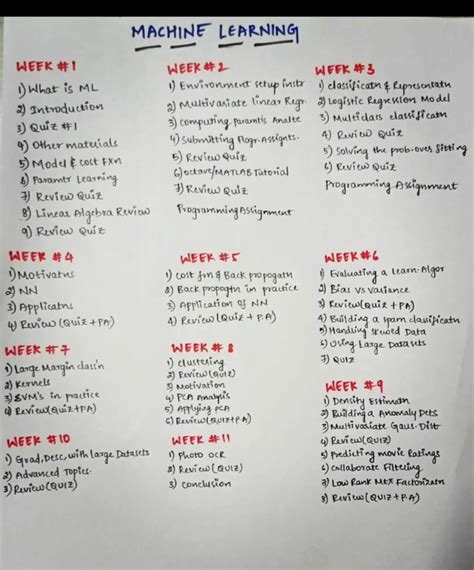 MACHINE LEARNING
WEEK #1
1) What is ML
2) Introduction
3) Quiz #1
4) Other materials
5) Model & Cost Fxn
6) Paramtr Learning
7) Review Quiz
8) Linear Algebra Review
9) Review Quiz
WEEK #2
1) Environment setup instr
2) Multivariate linear Regr.
3) Computing. Paramts Analte
4) Submitting Progr. Assignts.
5) Review Quiz
6) octave/MATLAB Tutorial
7) Review Quiz
Programming Assignment
WEEK #3
1) classificatn & Representatn
2) Logistic Regression Model
3) Multiclass classificatn
4) Review Quiz
5) Solving the prob. over fitting
6) Review Quiz
Programming Assignment
WEEK #4
1) Motivatns
2) NN
3) Applicatns
4) Review (Quiz + PA)
WEEK #5
1) Cost fxn & Back propogatn
2) Back propogtn in practice
3) Application of NN
4) Review (Quiz + P.A)
WEEK #6
1) Evaluating a Learn. Algor
2) Bias vs Variance
3) Review (Quiz + PA)
4) Building a spam classificatn
5) Handling Skewed Data
6) Using Large Datasets
7) QUIZ
WEEK #7
1) Large Margin class'n
2) Kernels
3) SVM's in practice
4) Review (Quiz + P.A)
WEEK #8
1) clustering
2) Review (QUIZ)
3) Motivation
4) PCA Analysis
5) Applying PCA
6) Review (QUIZ + P.A)
WEEK #9
1) Density Estimatn
2) Building a Anomaly Dets
3) Multivariate Gaus. Dist
4) Review (QUIZ)
5) Predicting movie Ratings
6) Collaborate Filtering
7) Low Rank Mtx Factorizatn
8) Review (QUIZ + P.A)
WEEK #10
1) Grad, Desc, with large Datasets
2) Advanced Topics.
3) Review (QUIZ)
WEEK #11
1) Photo OCR
2) Review (QUIZ)
3) Conclusion